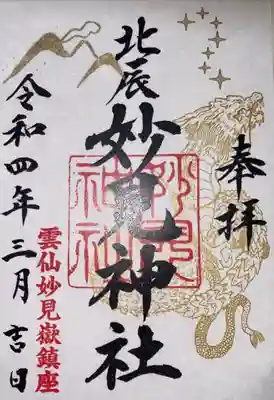 奉拝
北辰
妙見神社
妙見
神社
雲仙妙見嶽鎮座
令和四年三月吉日